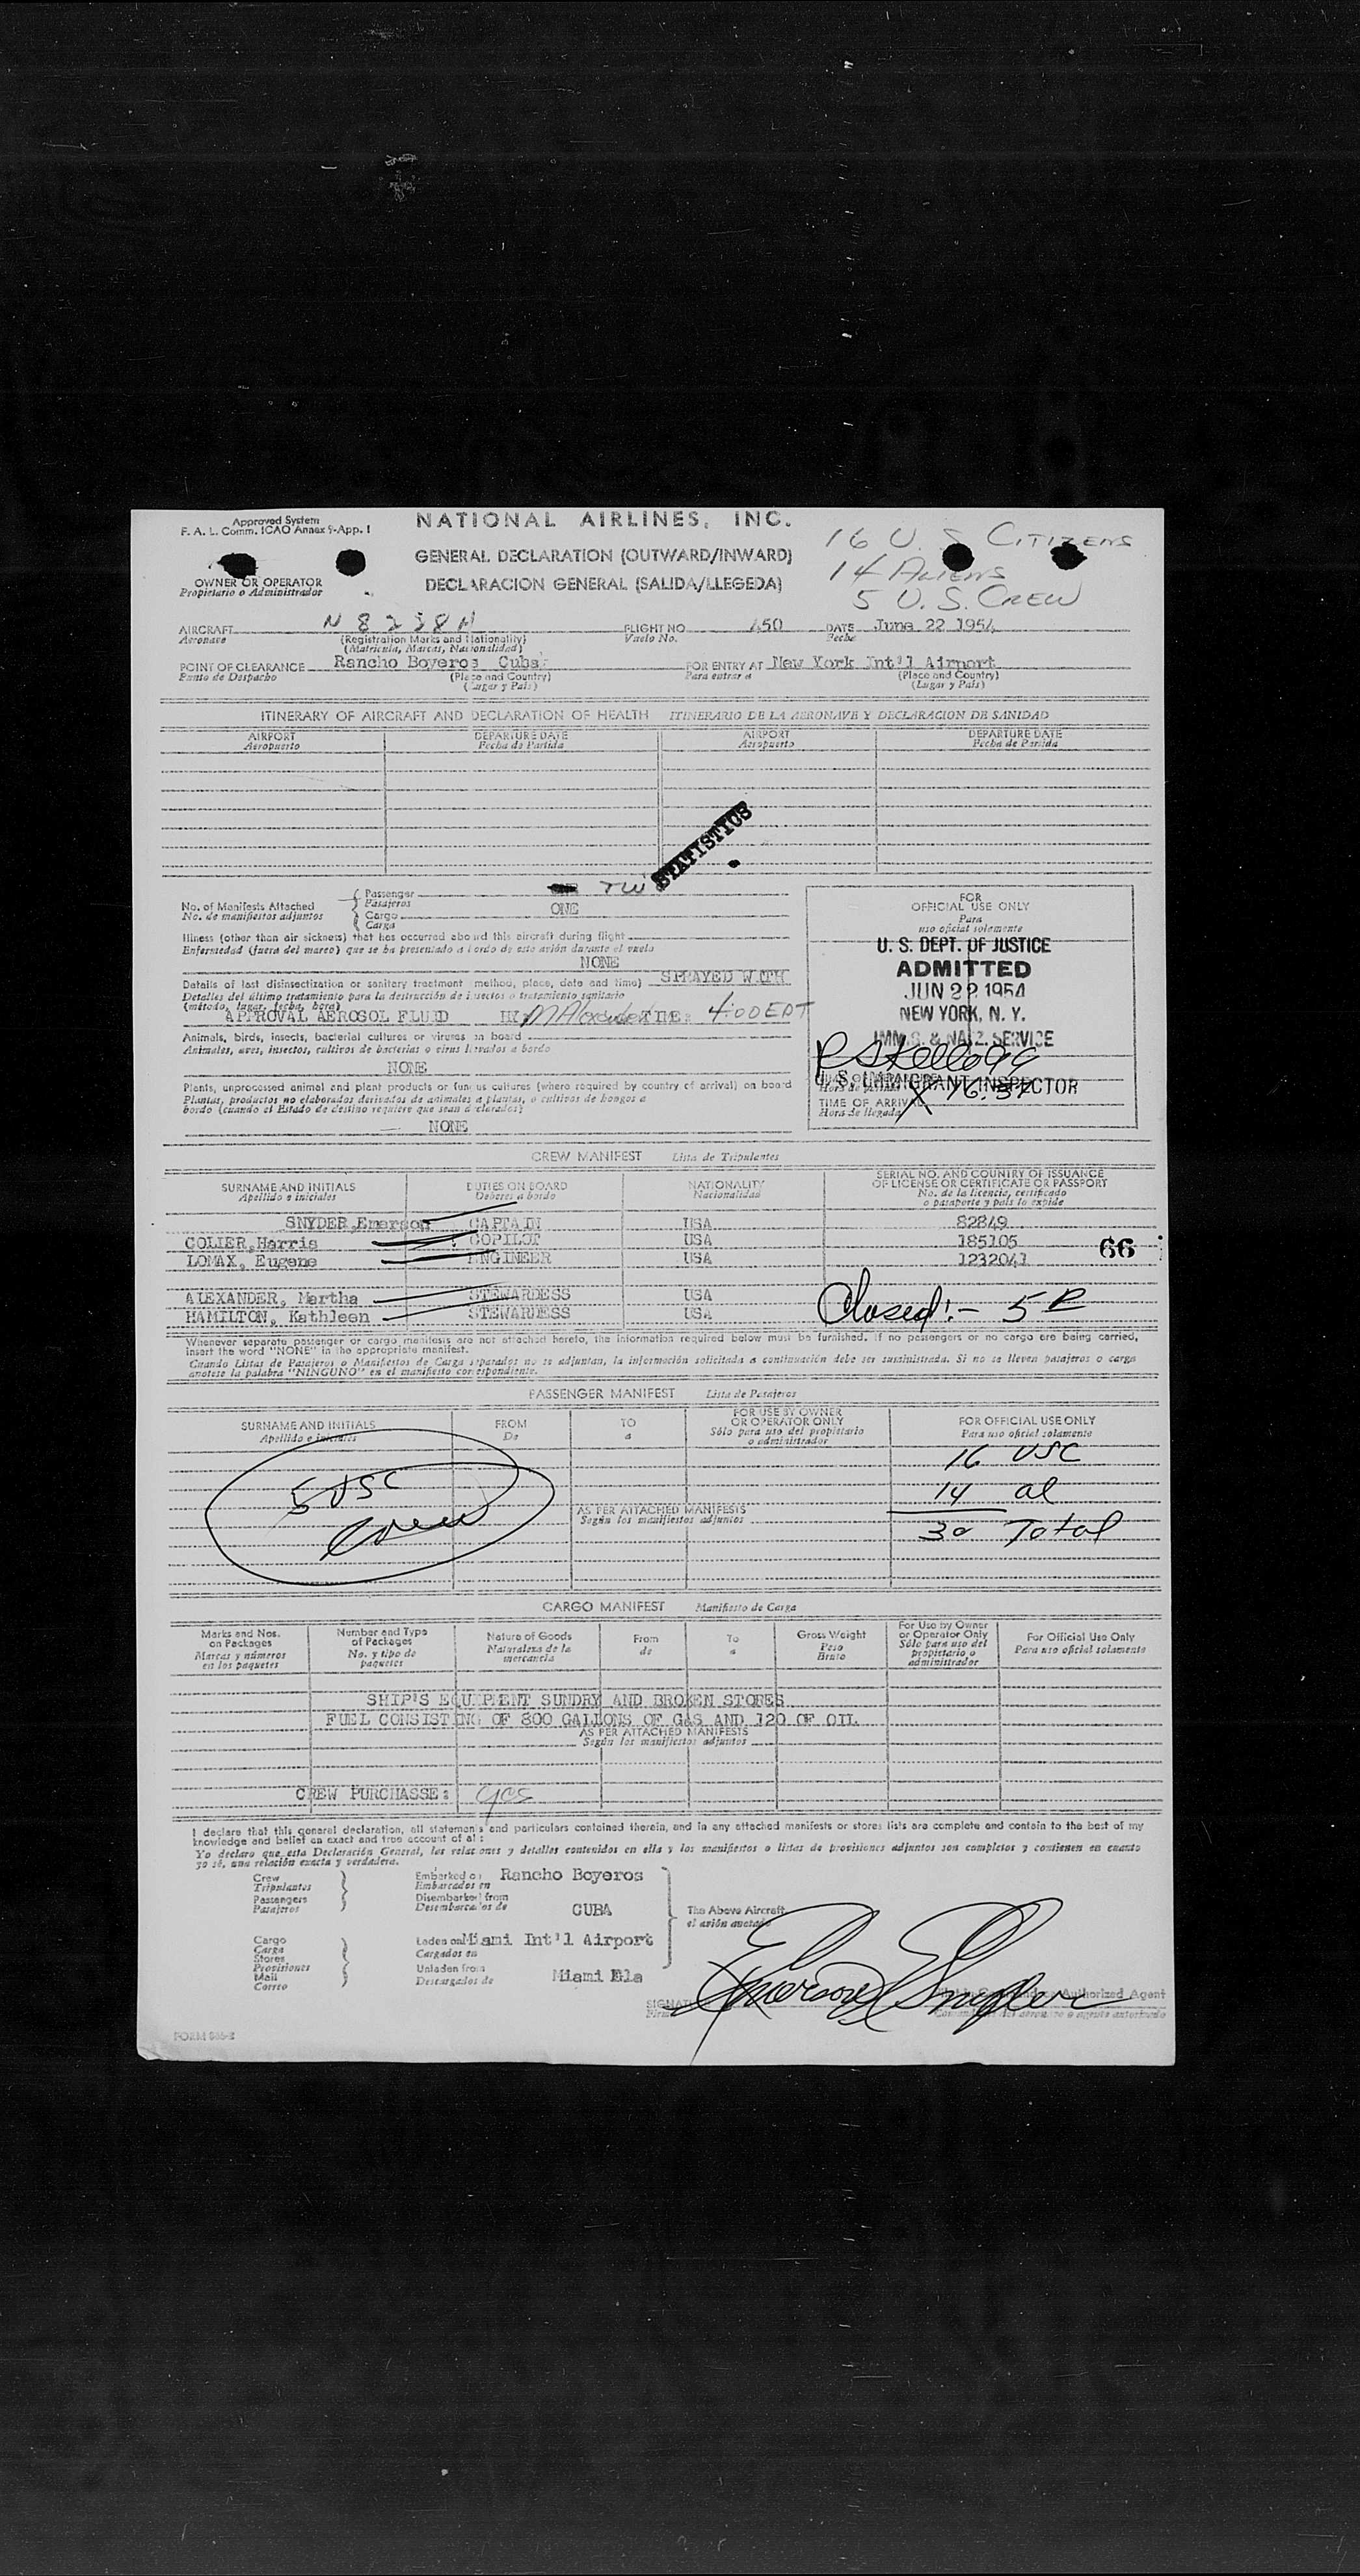 Approved System
F. A. L. Comm. ICAO Annex 9-App. I
NATIONAL AIRLINES, INC.
GENERAL DECLARATION (OUTWARD/INWARD)
DECLARACION GENERAL (SALIDA/LLEGEDA)
16 U. S CITIZENS
14 ALIENS
5 U. S. CREW
OWNER OR OPERATOR
Propietario o Administrador
AIRCRAFT N 8238H
Aeronave
(Registration Marks and Nationality)
(Matricula, Marcas, Nacionalidad)
FLIGHT NO 450
Vuelo No.
DATE June 22 1954
Fecha
POINT OF CLEARANCE Rancho Boyeros Cuba
Punto de Despacho
(Place and Country)
(Lugar y Pais)
FOR ENTRY AT New York Int'l Airport
Para entrar a
(Place and Country)
(Lugar y Pais)
ITINERARY OF AIRCRAFT AND DECLARATION OF HEALTH ITINERARIO DE LA AERONAVE Y DECLARACION DE SANIDAD
AIRPORT DEPARTURE DATE AIRPORT DEPARTURE DATE
Aeropuerto Fecha de Partida Aeropuerto Fecha de Partida
STATISTICS
No. of Manifests Attached
No. de manifiestos adjuntos
Passenger TW
Pasajeros
Cargo ONE
Carga
Illness (other than air sickness) that has occurred aboard this aircraft during flight
Enfermedad (fuera del mareo) que se ha presentado a bordo de este avión durante el vuelo
NONE
Details of last disinsectization or sanitary treatment method, place, date and time) SPRAYED WITH
Detalles del último tratamiento para la destrucción de insectos o tratamiento sanitario
(método, lugar, fecha, hora)
APPROVAL AEROSOL FLUID BY MAlexander TIME: 400 EDT
Animals, birds, insects, bacterial cultures or viruses on board
Animales, aves, insectos, cultivos de bacterias o virus llevados a bordo
NONE
Plants, unprocessed animal and plant products or fungus cultures (where required by country of arrival) on board
Plantas, productos no elaborados derivados de animales o plantas, o cultivos de hongos a
bordo (cuando el Estado de destino requiere que sean declarados)
NONE
FOR
OFFICIAL USE ONLY
Para
uso oficial solamente
U. S. DEPT. OF JUSTICE
ADMITTED
JUN 22 1954
NEW YORK, N. Y.
IMMIG. & NATZ. SERVICE
R S Kellogg
U. S. IMMIGRANT INSPECTOR
TIME OF ARRIVAL
Hora de llegada
CREW MANIFEST Lista de Tripulantes
SURNAME AND INITIALS DUTIES ON BOARD NATIONALITY SERIAL NO. AND COUNTRY OF ISSUANCE
OF LICENSE OR CERTIFICATE OR PASSPORT
Apellido e iniciales Deberes a bordo Nacionalidad No. de la licencia, certificado
o pasaporte y pais lo expide
SNYDER, Emerson CAPTAIN USA 82849
COLIER, Harris COPILOT USA 185105
LOMAX, Eugene ENGINEER USA 1232041
66
ALEXANDER, Martha STEWARDESS USA
HAMILTON, Kathleen STEWARDESS USA
Closed:- 5 P
Whenever separate passenger or cargo manifests are not attached hereto, the information required below must be furnished. If no passengers or no cargo are being carried,
insert the word "NONE" in the appropriate manifest.
Cuando Listas de Pasajeros o Manifiestos de Carga separados no se adjuntan, la información solicitada a continuación debe ser suministrada. Si no se lleven pasajeros o carga
anotese la palabra "NINGUNO" en el manifiesto correspondiente.
PASSENGER MANIFEST Lista de Pasajeros
SURNAME AND INITIALS FROM TO FOR USE BY OWNER
OR OPERATOR ONLY FOR OFFICIAL USE ONLY
Apellido e iniciales De a Sólo para uso del propietario
o administrador Para uso oficial solamente
16 USC
14 al
30 Total
5 USC
Crew
AS PER ATTACHED MANIFESTS
Según los manifiestos adjuntos
CARGO MANIFEST Manifiesto de Carga
Marks and Nos.
on Packages
Marcas y números
en los paquetes
Number and Type
of Packages
No. y tipo de
paquetes
Nature of Goods
Naturaleza de la
mercancia
From
de
To
a
Gross Weight
Peso
Bruto
For Use by Owner
or Operator Only
Sólo para uso del
propietario o
administrador
For Official Use Only
Para uso oficial solamente
SHIP'S EQUIPMENT SUNDRY AND BROKEN STORES
FUEL CONSISTING OF 800 GALLONS OF GAS AND 120 OF OIL
AS PER ATTACHED MANIFESTS
Según los manifiestos adjuntos
CREW PURCHASSE: yes
I declare that this general declaration, all statements and particulars contained therein, and in any attached manifests or stores lists are complete and contain to the best of my
knowledge and belief an exact and true account of all:
Yo declaro que esta Declaración General, las relaciones y detalles contenidos en ella y los manifiestos o listas de provisiones adjuntos son completos y contienen en cuanto
yo sé, una relación exacta y verdadera.
Crew
Tripulantes
Passengers
Pasajeros
Embarked on Rancho Boyeros
Embarcados en
Disembarked from
Desembarcados de CUBA
The Above Aircraft
el avión anotado
Cargo
Carga
Stores
Provisiones
Mail
Correo
Laden on Miami Int'l Airport
Cargados en
Unladen from
Descargados de Miami Fla
Emerson E Snyder
Authorized Agent
FORM